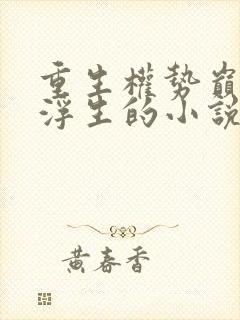 重生權勢巔
浮生的小說
黃春香